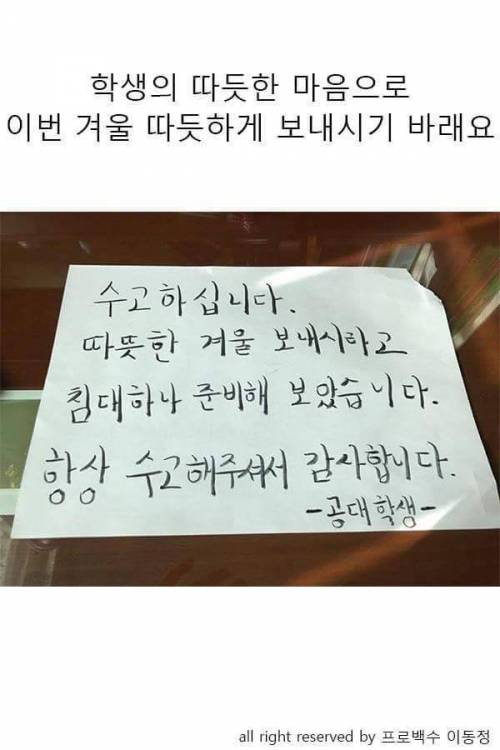 학생의 따듯한 마음으로
이번 겨울 따듯하게 보내시기 바래요
수고하십니다.
따뜻한 겨울 보내시하고
침대하나 준비해 보았습니다.
항상 수고해주셔서 감사합니다.
-공대학생-
all right reserved by 프로백수 이동정